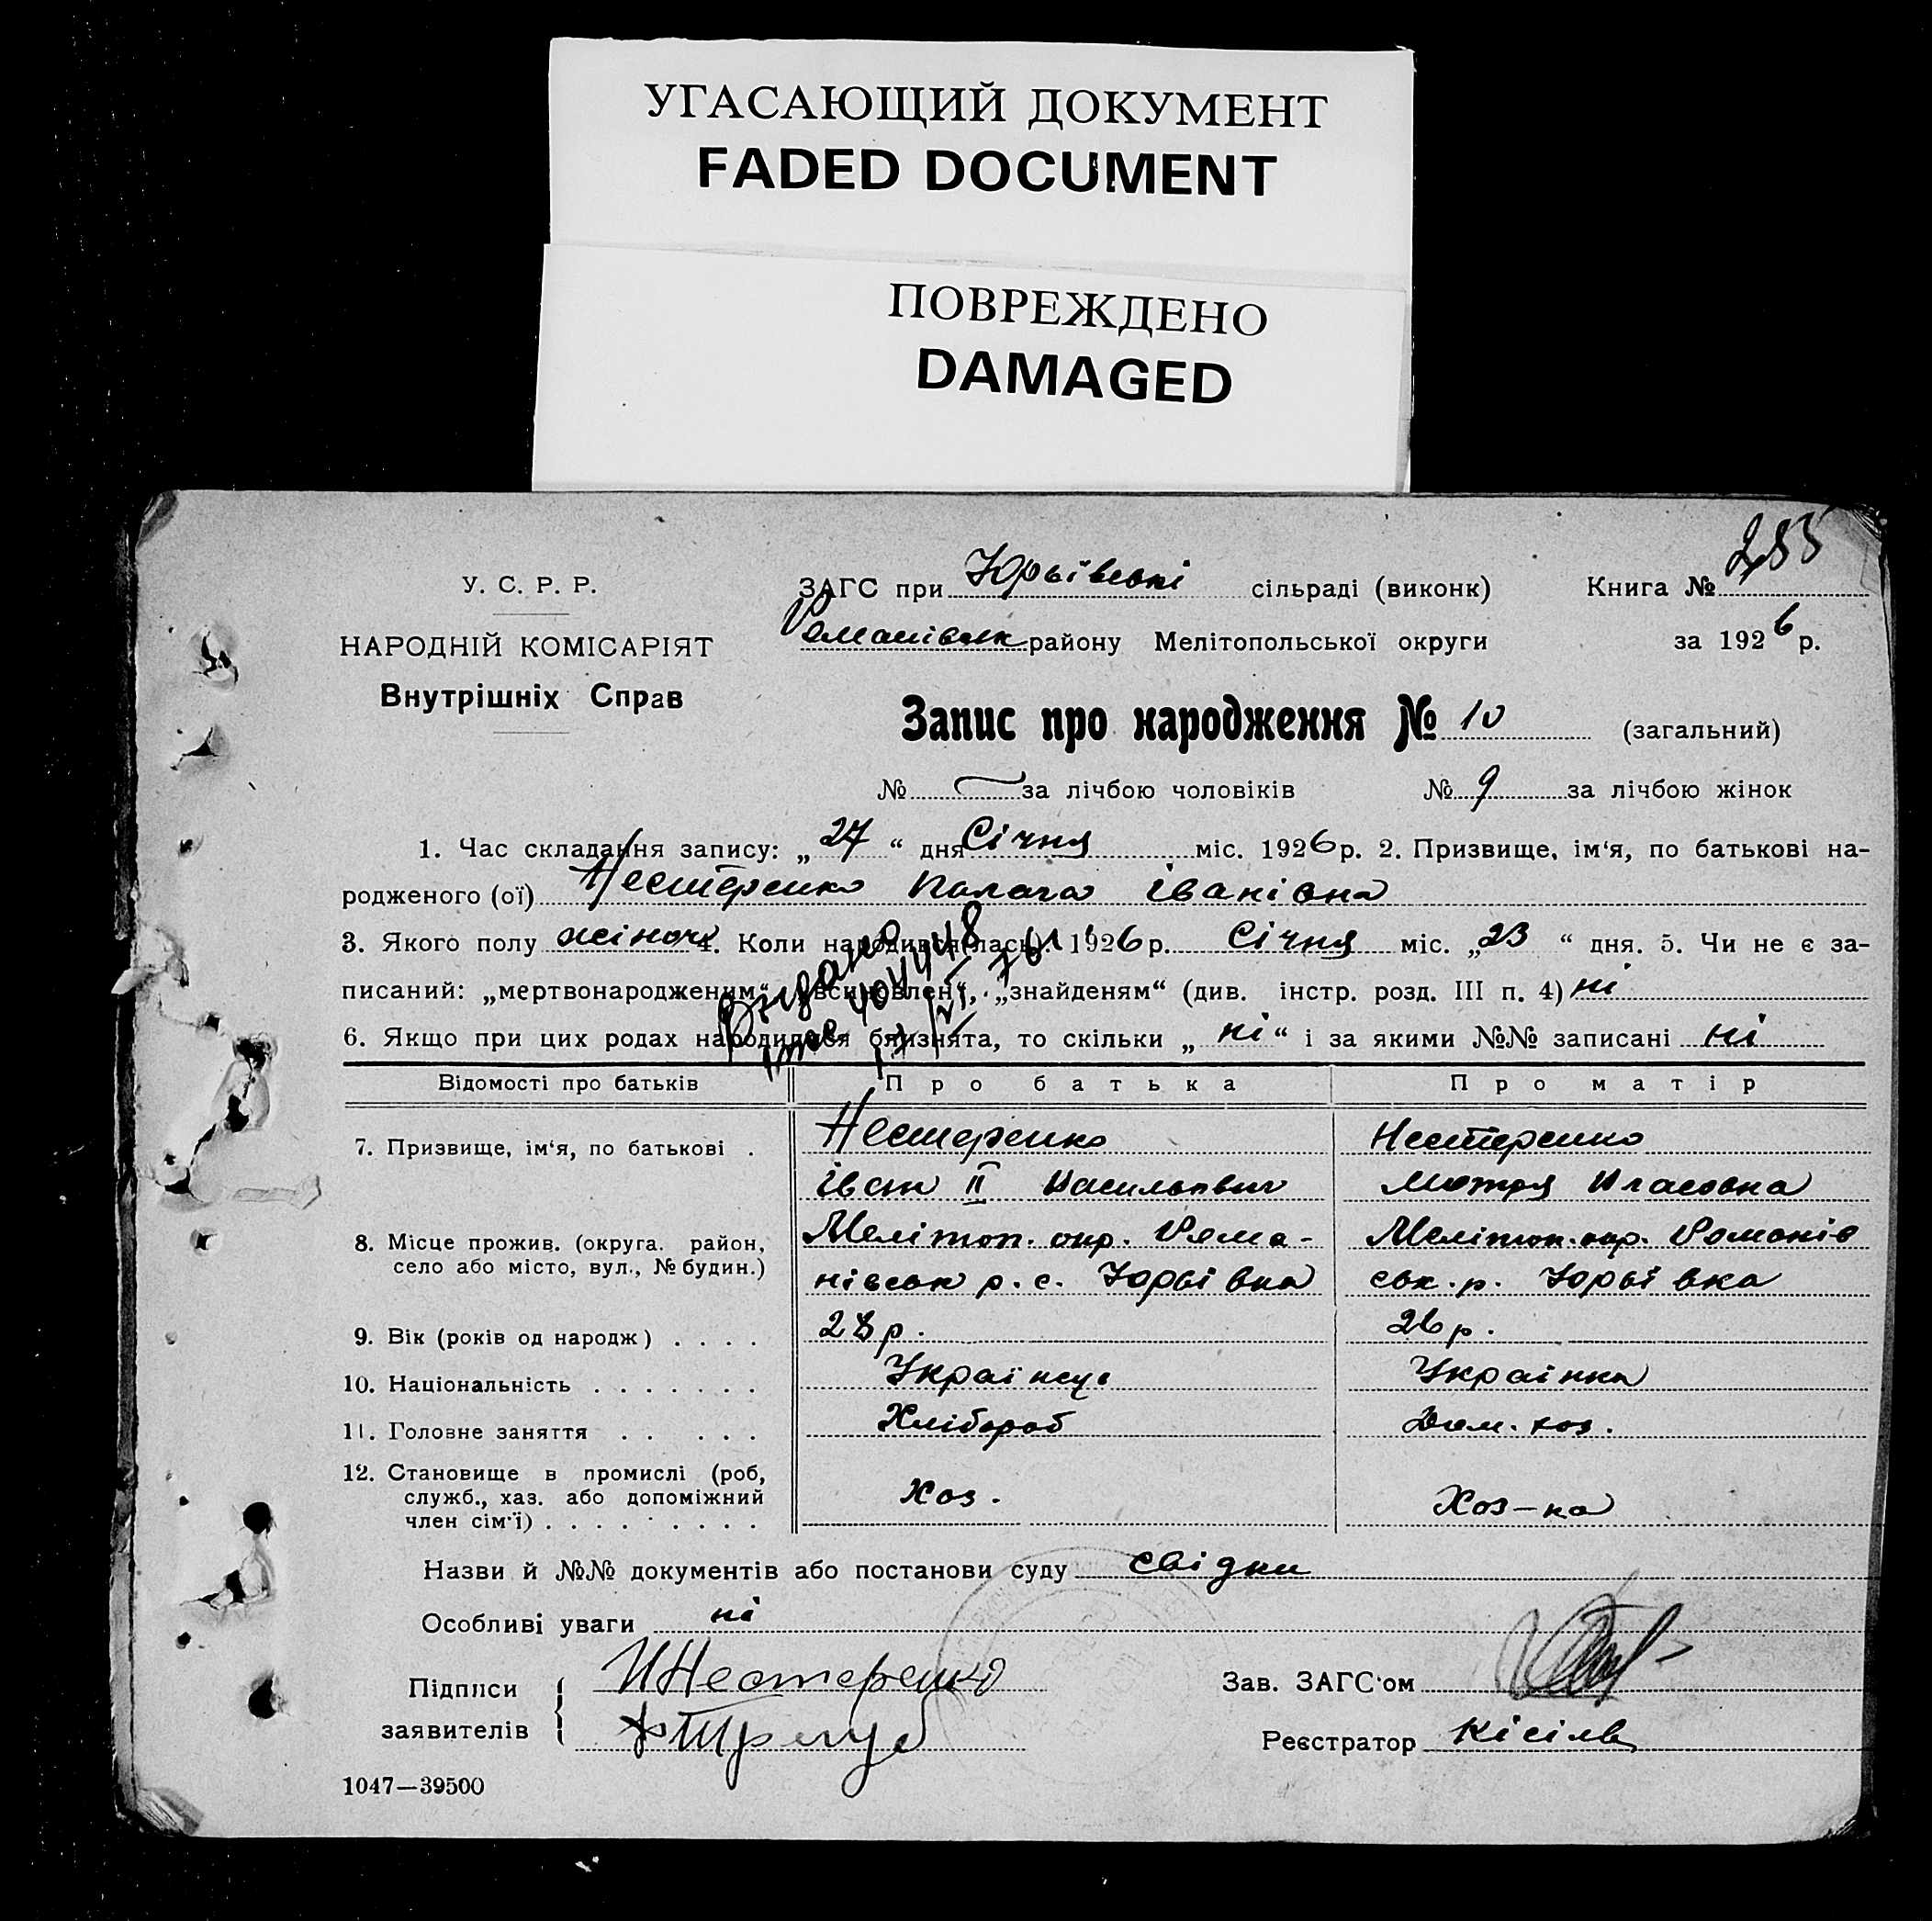 УГАСАЮЩИЙ ДОКУМЕНТ
FADED DOCUMENT
ПОВРЕЖДЕНО
DAMAGED
285
У. С. Р. Р.
НАРОДНІЙ КОМІСАРІЯТ
Внутрішніх Справ
ЗАГС при Юрьївські сільраді (виконк)
Книга №
Романівськ району Мелітопольської округи
за 1926 р.
Запис про народження № 10 (загальний)
№ за лічбою чоловіків № 9 за лічбою жінок
1. Час складання запису: „ 27 “ дня Січня міс. 1926 р. 2. Призвище, ім‘я, по батькові на-
родженого (ої) Нестеренко Палага Іванівна
3. Якого полу жіноч 4. Коли народився(лась) 1926 р. Січня міс. „ 23 “ дня. 5. Чи не є за-
писаний: „мертвонародженим“, „всиновлен“, „знайденям“ (див. інстр. розд. III п. 4) ні
6. Якщо при цих родах народилися близнята, то скільки „ ні “ і за якими №№ записані ні
Видано
Відомості про батьків Про батька Про матір
7. Призвище, ім‘я, по батькові . Нестеренко Нестеренко
Іван II Васильович Мотря Власовна
8. Місце прожив. (округа. район, Меліտոп. окр. Рома- Мелітоп. окр. Романів
село або місто, вул., № будин.) нівськ р. с. Юрьївка ськ. р. Юрьївка
9. Вік (років од народж) . . . . 28 р. 26 р.
10. Національність . . . . . . . Українець Українка
11. Головне заняття . . . . . Хлібороб Дом. хоз.
12. Становище в промислі (роб,
служб., хаз. або допоміжний Хоз. Хоз-ка
член сім‘ї) . . . . . . . . .
Назви й №№ документів або постанови суду свідки
Особливі уваги ні
Підписи И Нестеренко Зав. ЗАГС‘ом
заявителів Реєстратор Кісіль
1047—39500